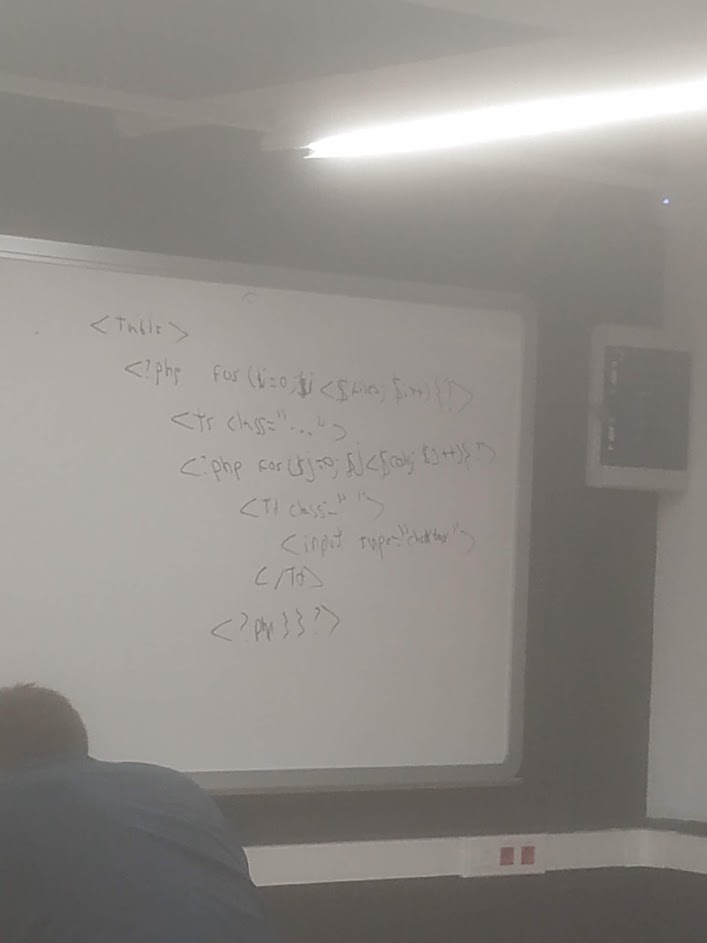 <Table>
<?php for ($i=0; $i <$filas; $i++) { ?>
<tr class="...">
<?php for ($j=0; $j<$col; $j++) { ?>
<Td class=" ">
<input type="checkbox">
</Td>
<?php }} ?>